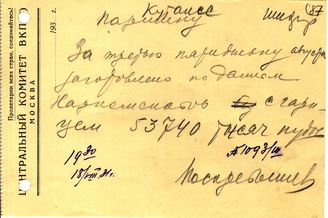 Пролетарии всех стран, соединяйтесь!
ЦЕНТРАЛЬНЫЙ КОМИТЕТ ВКП
МОСКВА
193 г.
Кутаисе
шифр
87
За третью пятидневку августа
заготовлено по данным
Наркомснабов с гарн
цем 53740 тысяч пудов
19 30
18/VIII 31 г.
Поскребышев